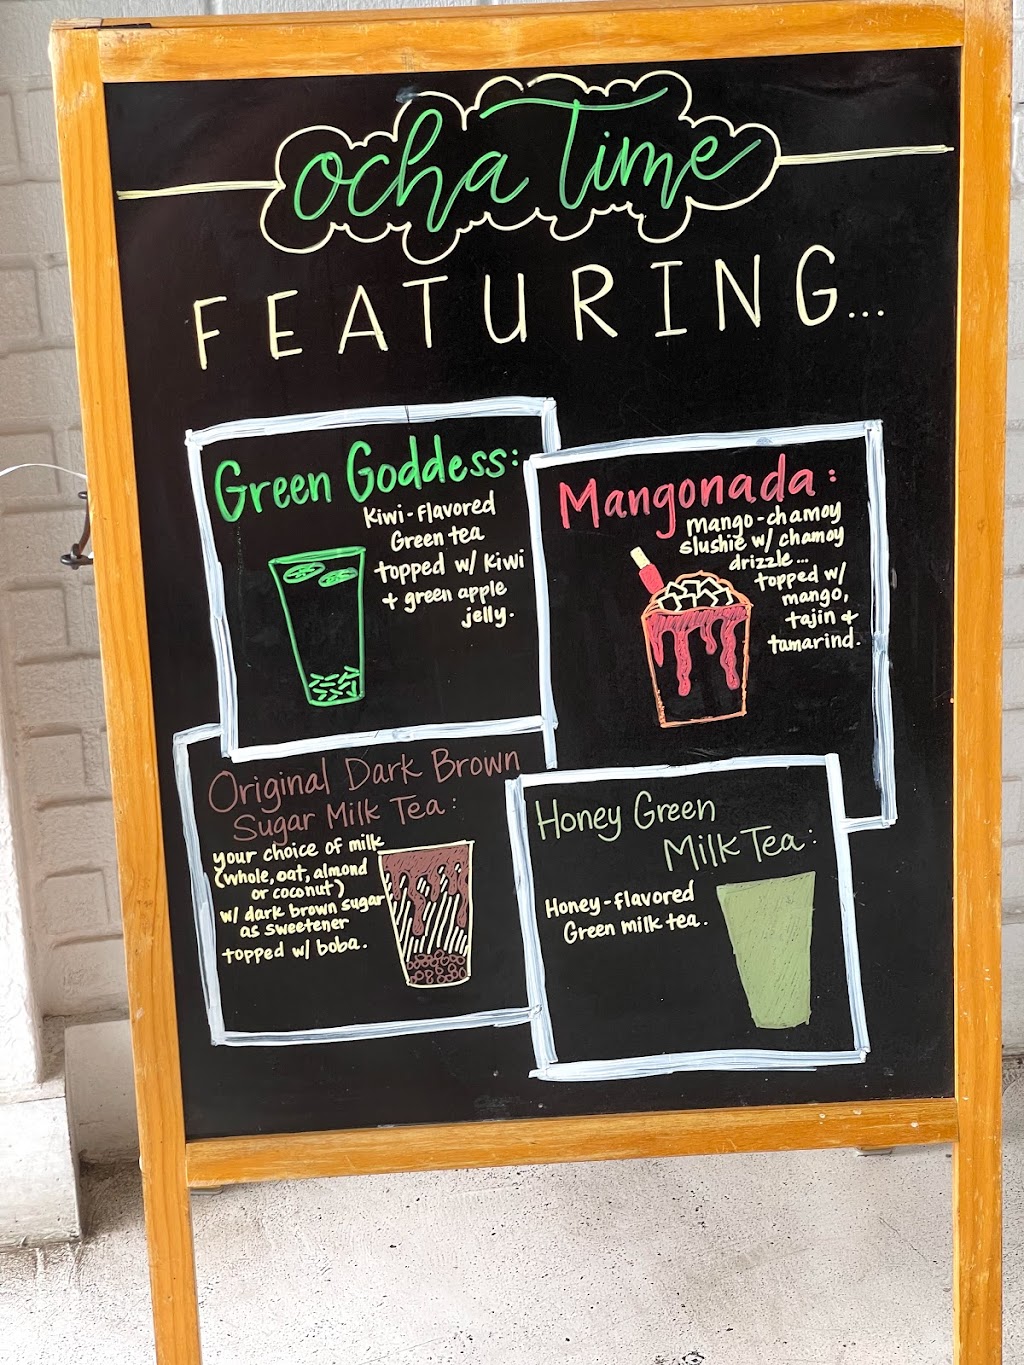 ocha Time
FEATURING...
Green Goddess:
Kiwi-flavored
Green tea
topped w/ kiwi
+ green apple
jelly.
Mangonada:
mango-chamoy
slushie w/ chamoy
drizzle...
topped w/
mango,
tajin +
tamarind.
Original Dark Brown
Sugar Milk Tea:
your choice of milk
(whole, oat, almond
or coconut)
w/ dark brown sugar
as sweetener
topped w/ boba.
Honey Green
Milk Tea:
Honey-flavored
Green milk tea.